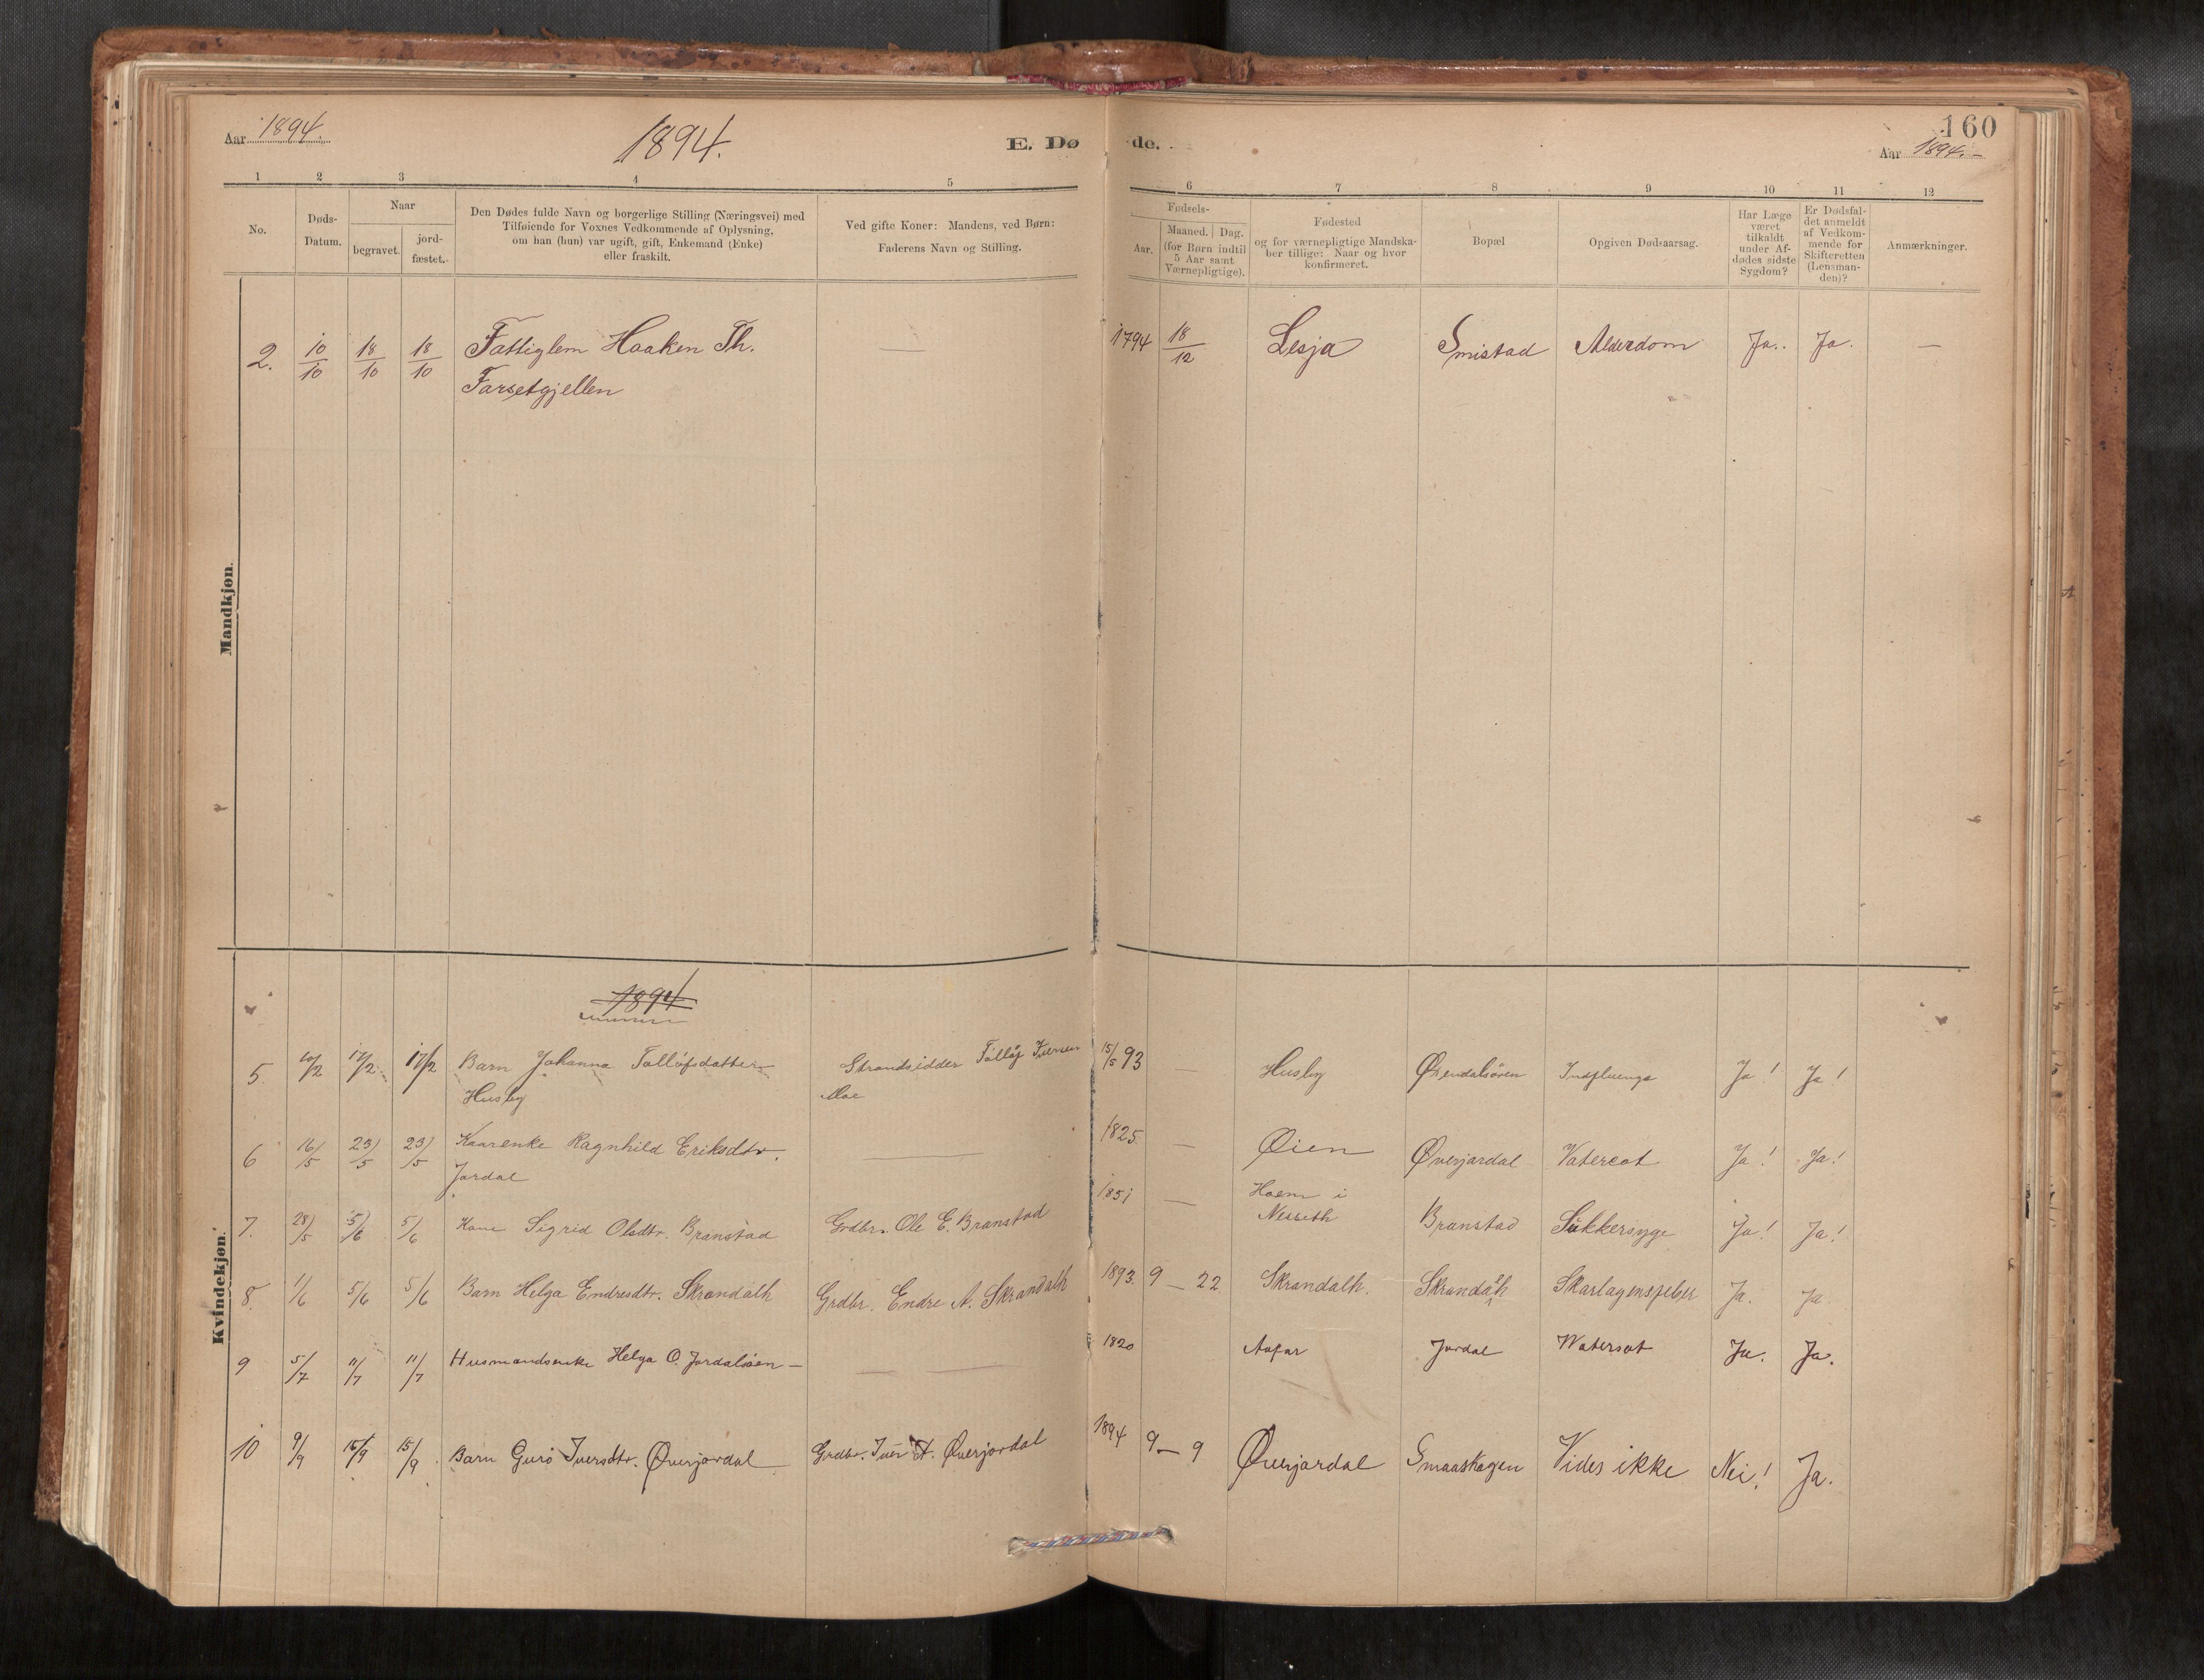 Aar 1894.
1894.
E. Dø
de.
160
Aar 1894.-
1 2 3 4 5 6 7 8 9 10 11 12
No.
Døds-
Datum.
Naar
begravet.
jord-
fæstet.
Den Dødes fulde Navn og borgerlige Stilling (Næringsvei) med
Tilføiende for Voxnes Vedkommende af Oplysning,
om han (hun) var ugift, gift, Enkemand (Enke)
eller fraskilt.
Ved gifte Koner: Mandens, ved Børn:
Faderens Navn og Stilling.
Fødsels-
Aar.
Maaned. Dag.
(for Børn indtil
5 Aar samt
Værnepligtige).
Fødested
og for værnepligtige Mandska-
ber tillige: Naar og hvor
konfirmeret.
Bopæl
Opgiven Dødsaarsag.
Har Læge
været
tilkaldt
under Af-
dødes sidste
Sygdom?
Er Dødsfal-
det anmeldt
af Vedkom-
mende for
Skifteretten
(Lensman-
den)?
Anmærkninger.
Mandkjøn.
2. 10/10 18/10 18/10 Fattiglem Haaken Th. — 1794 18/12 Lesja Smistad Alderdom Ja. Ja. —
Farsetgjellen
Kvindekjøn.
1894
5. 10/2 17/2 17/2 Barn Johanna Tollófsdatter Strandsidder Tollóf Iversen 15/5 93 — Husby Øxendalsøren Indfluenza Ja! Ja!
Husby Moe
6 16/5 23/5 23/5 Kaarenke Ragnhild Eriksdtr. — 1825 — Øien Øverjardal Vatersot Ja! Ja!
Jordal
7. 28/5 5/6 5/6 Kone Sigrid Olsdtr. Branstad Grdbr. Ole E. Branstad 1851 — Hoem i Branstad Sukkersyge Ja! Ja!
Nesseth
8. 1/6 5/6 5/6 Barn Helga Endresdtr. Skrandalh Grdbr. Endre A. Skrandalh 1893. 9 — 22 Skrandalh. Skrandalh Skarlagensfeber Ja. Ja
9 5/7 11/7 11/7 Husmandsenke Helga O. Jordalsøen — — 1820 Jordal Watersot Ja. Ja.
10 9/9 15/9 15/9 Barn Guro Iversdtr. Øverjordal Grdbr. Iver A. Øverjordal 1894 9 — 9 Øverjordal Smaaskogen Vides ikke Nei! Ja.